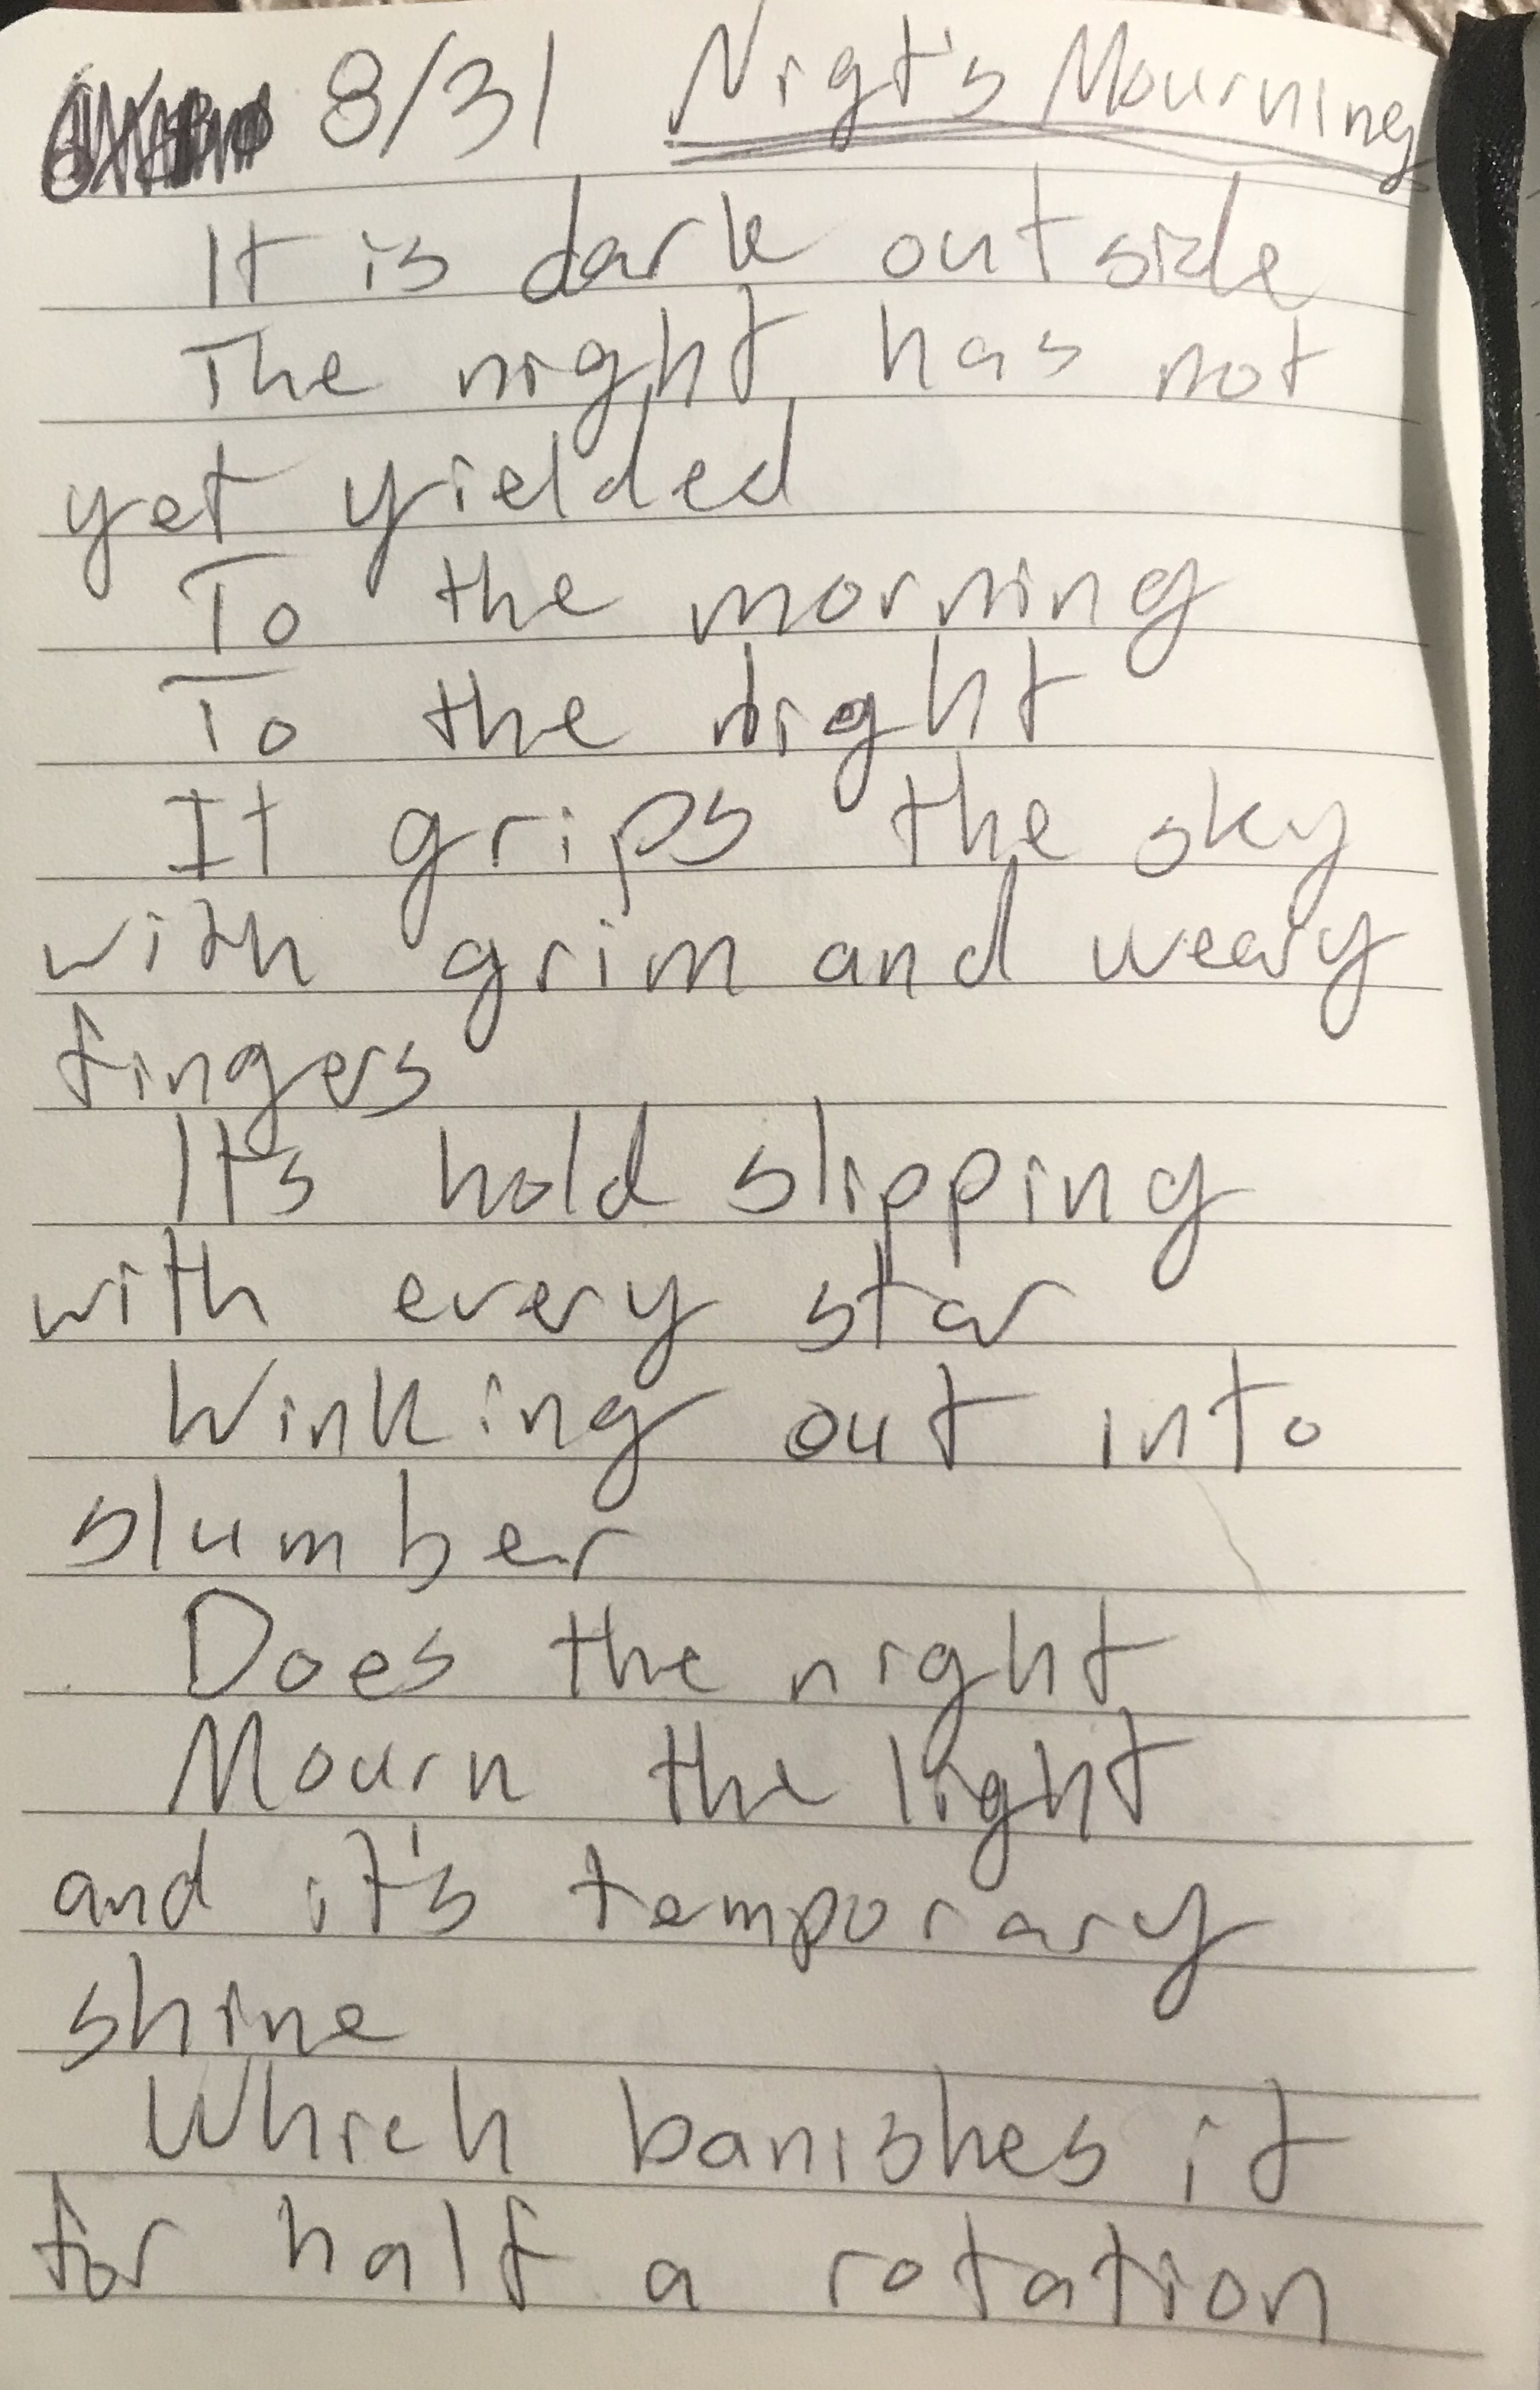 8/31 Nigt's Mourning
It is dark outside
The night has not
yet yielded
To the morning
To the night
It grips the sky
with grim and weary
fingers
Its hold slipping
with every star
Winking out into
slumber
Does the night
Mourn the light
and it's temporary
shine
Which banishes it
for half a rotation